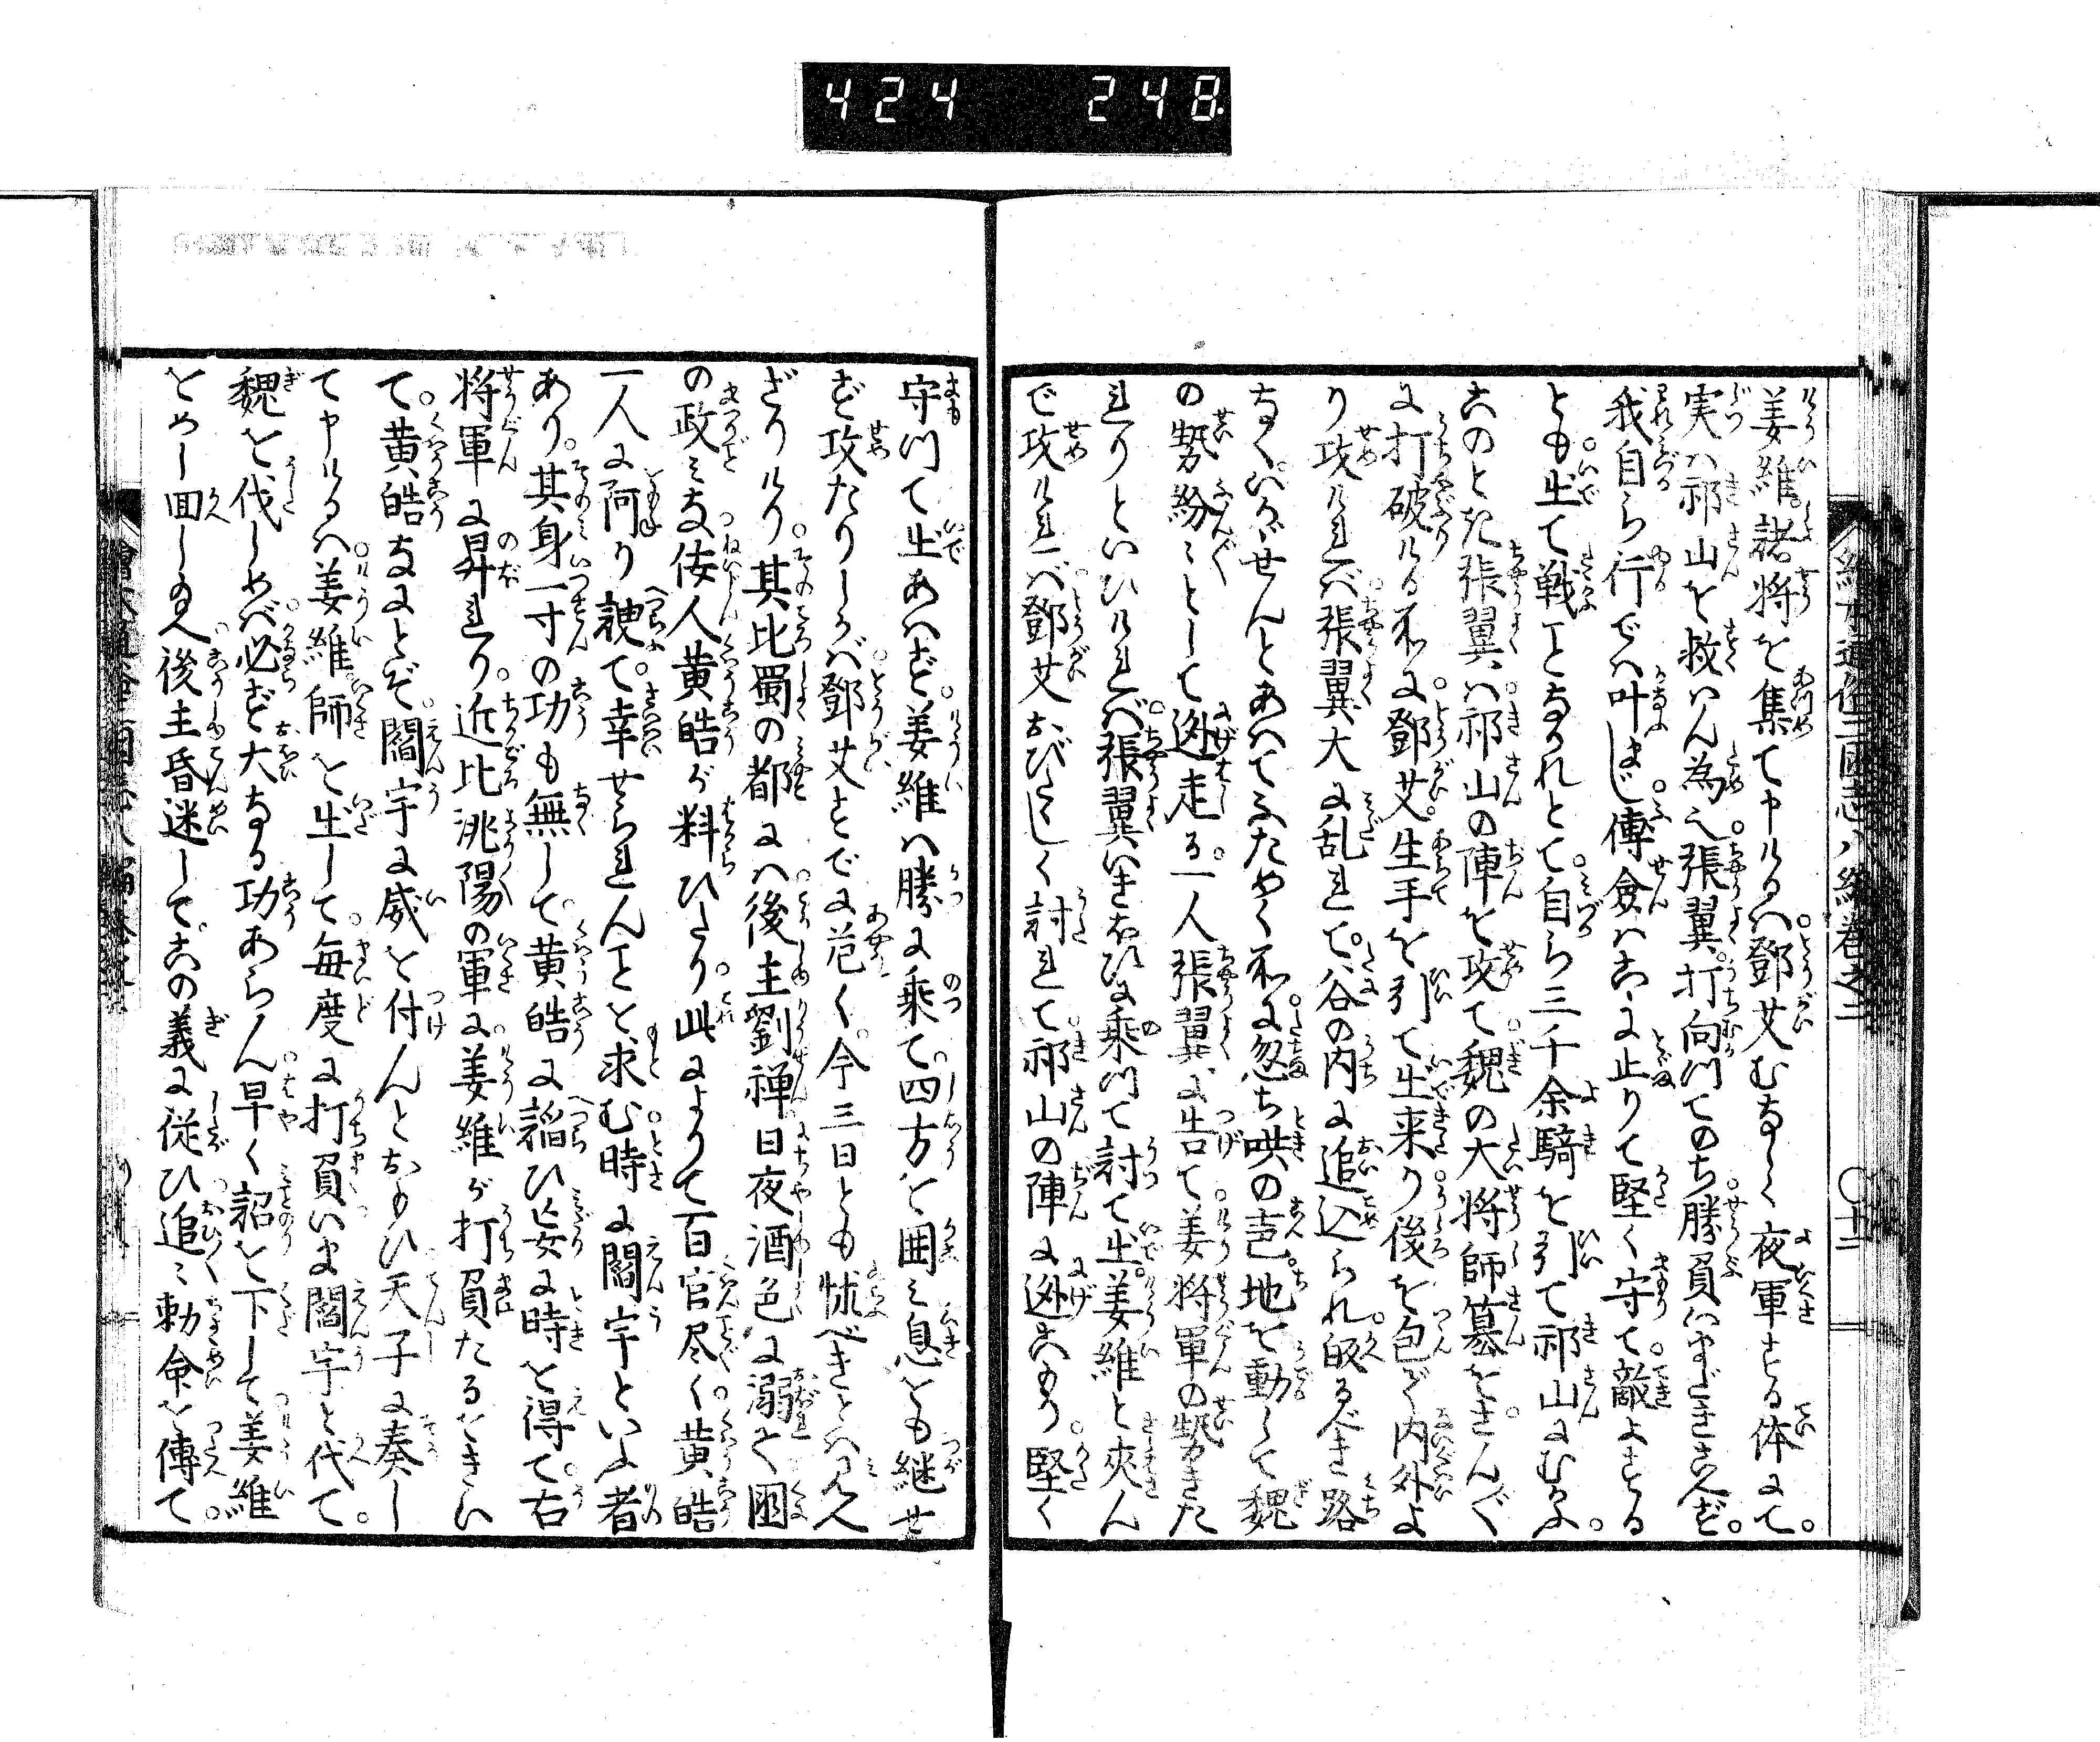 424 248
姜維諸将を集て申けるハ鄧艾むなしく夜軍する体にて。
実ハ祁山を救ハん為也張翼打向つてのち勝負いまだきこえず。
我自ら行でハ叶まじ傅僉ハこゝに止りて堅く守て敵よする
とも出て戦ことなかれとて自ら三千余騎を引て祁山にむかふ。
このとき張翼ハ祁山の陣を攻て魏の大将師纂をさんぐ
に打破ける所に鄧艾生手を引て出来り後を包で内外よ
り攻けれバ張翼大に乱れて谷の内に追込られ皈るべき路
なくいかゞせんとあハてふためく所に忽ち哄の声地を動して魏
の勢紛ミとして迯走る一人張翼に告て姜将軍の勢きた
れりといひけれバ張翼いきほひに乗つて討て出姜維と夾ん
で攻けれバ鄧艾おびたゝしく討れて祁山の陣に迯こもり。堅く
守つて出あハず。姜維ハ勝に乗て四方を囲ミ息をも継せ
ず攻たりしかバ鄧艾すでに危く今三日とも怺べきとハ見え
ざりけり。其比蜀の都にハ後主劉禅日夜酒色に溺て国
の政ミな佞人黄皓が料ひたり此によりて百官尽く黄皓
一人に阿り諛て幸せられんことを求む時に閻宇といふ者
あり。其身一寸の功も無して黄皓に謟ひ妄に時を得て右
将軍に昇れり。近比洮陽の軍に姜維が打負たるをきい
て。黄皓なにとぞ閻宇に威を付んとおもひ天子に奏し
て申けるハ姜維師を出して毎度に打負いま閻宇を代て。
魏を伐しめバ必ず大なる功あらん早く詔を下して姜維
をめし囬し給へ後主昏迷して。この義に従ひ追ミ勅命を傳て。